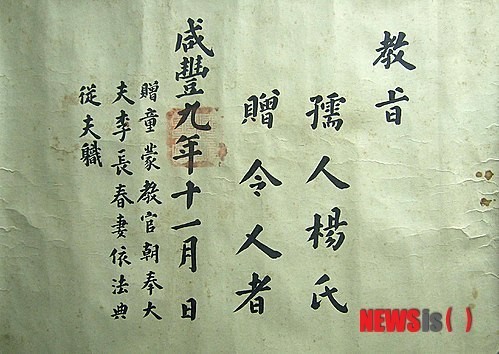 教旨
孺人楊氏
贈令人者
咸豐九年十一月 日
贈童蒙教官朝奉大
夫李長春妻依法典
從夫職
NEWSis( )